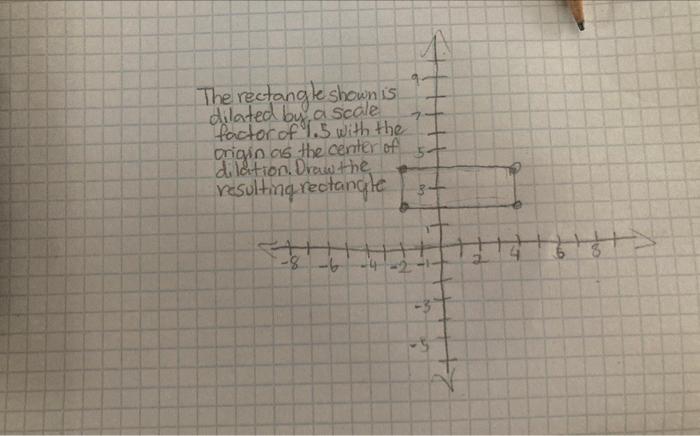 The rectangle shown is
dilated by a scale
factor of 1.5 with the
origin as the center of
dilation. Draw the
resulting rectangle
9
7
5
3
1
-8 -6 -4 -2 -1 2 4 6 8
-3
-5